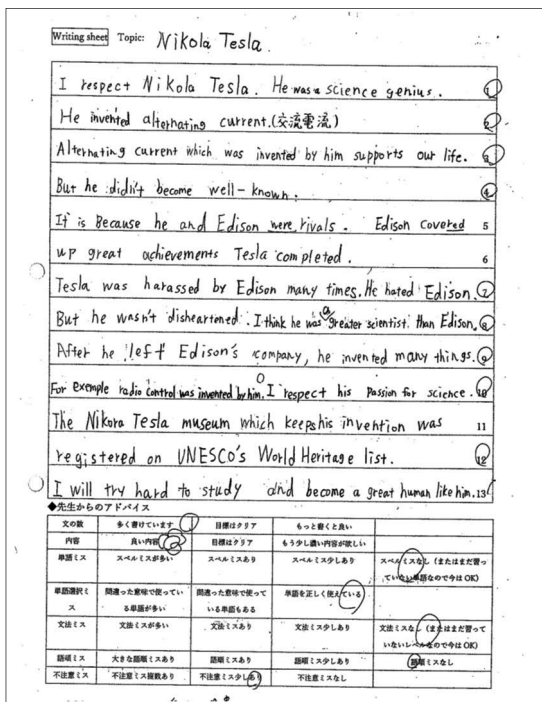 Writing sheet Topic: Nikola Tesla.
I respect Nikola Tesla. He was a science genius. 1
He invented alternating current.(交流電流) 2
Alternating current which was invented by him supports our life. 3
But he didn't become well-known. 4
It is Because he and Edison were rivals. Edison covered 5
up great achievements Tesla completed. 6
Tesla was harassed by Edison many times. He hated Edison. 7
But he wasn't disheartened. I think he was a greater scientist than Edison. 8
After he left Edison's company, he invented many things. 9
For exemple radio control was invented by him. I respect his passion for science. 10
The Nikora Tesla museum which keeps his invention was 11
registered on UNESCO's World Heritage list. 12
I will try hard to study and become a great human like him. 13
◆先生からのアドバイス
文の数 多く書けています 目標はクリア もっと書くと良い
内容 良い内容 目標はクリア もう少し濃い内容が欲しい
単語ミス スペルミスが多い スペルミスあり スペルミス少しあり スペルミスなし(またはまだ習っ
ていない単語なので今は OK)
単語選択ミ 間違った意味で使ってい 間違った意味で使って 単語を正しく使えている
ス る単語が多い いる単語もある
文法ミス 文法ミスが多い 文法ミスあり 文法ミス少しあり 文法ミスなし(または まだ習って
いないレベルなので今は OK)
語順ミス 大きな語順ミスあり 語順ミスあり 語順ミス少しあり 語順ミスなし
不注意ミス 不注意ミス複数あり 不注意ミス少しあり 不注意ミスなし